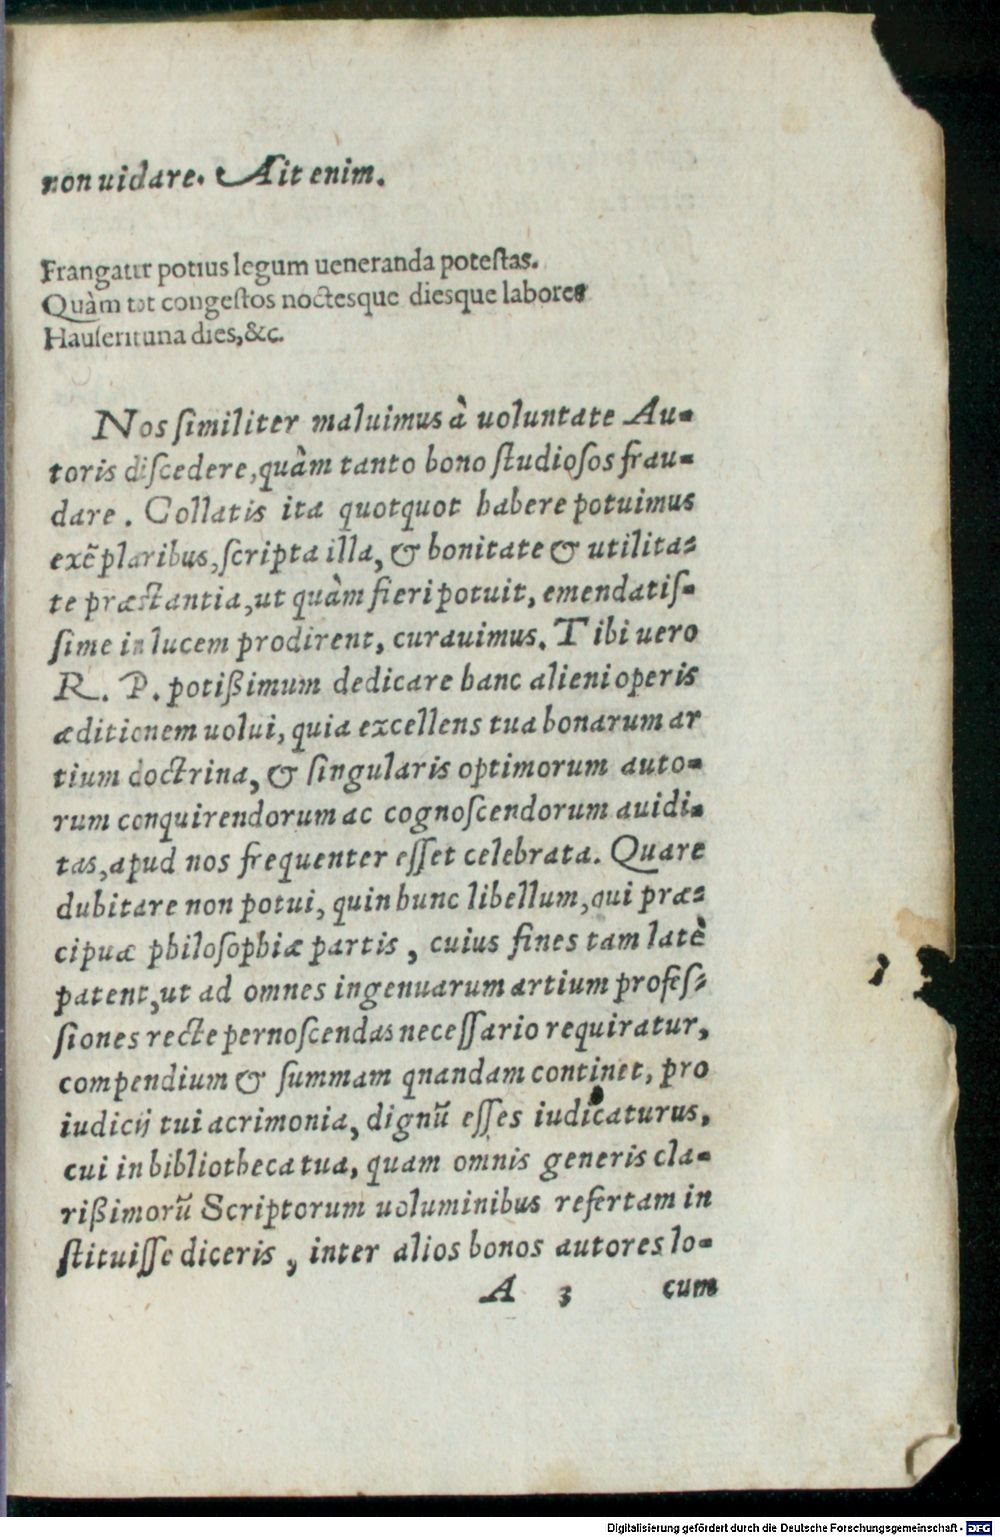 non uidare. Ait enim.
Frangatur potius legum ueneranda potestas.
Quàm tot congestos noctesque diesque labores
Hauserit una dies, &c.
Nos ſimiliter maluimus à uoluntate Au-
toris diſcedere, quàm tanto bono ſtudioſos frau-
dare. Collatis ita quotquot habere potuimus
exẽplaribus, ſcripta illa, & bonitate & utilita-
te præstantia, ut quàm fieri potuit, emendatiſ-
ſime in lucem prodirent, curauimus. Tibi uero
R. P. potißimum dedicare hanc alieni operis
æditionem uolui, quia excellens tua bonarum ar
tium doctrina, & ſingularis optimorum auto-
rum conquirendorum ac cognoſcendorum auidi-
tas, apud nos frequenter eſſet celebrata. Quare
dubitare non potui, quin hunc libellum, qui præ-
cipuæ philoſophiæ partis, cuius fines tam latè
patent, ut ad omnes ingenuarum artium profeſ-
ſiones recte pernoſcendas neceſſario requiratur,
compendium & ſummam qnandam continet, pro
iudicij tui acrimonia, dignũ eſſes iudicaturus,
cui in bibliotheca tua, quam omnis generis cla-
rißimorũ Scriptorum uoluminibus refertam in
ſtituiſſe diceris, inter alios bonos autores lo-
A 3 cum
Digitalisierung gefördert durch die Deutsche Forschungsgemeinschaft - DFG